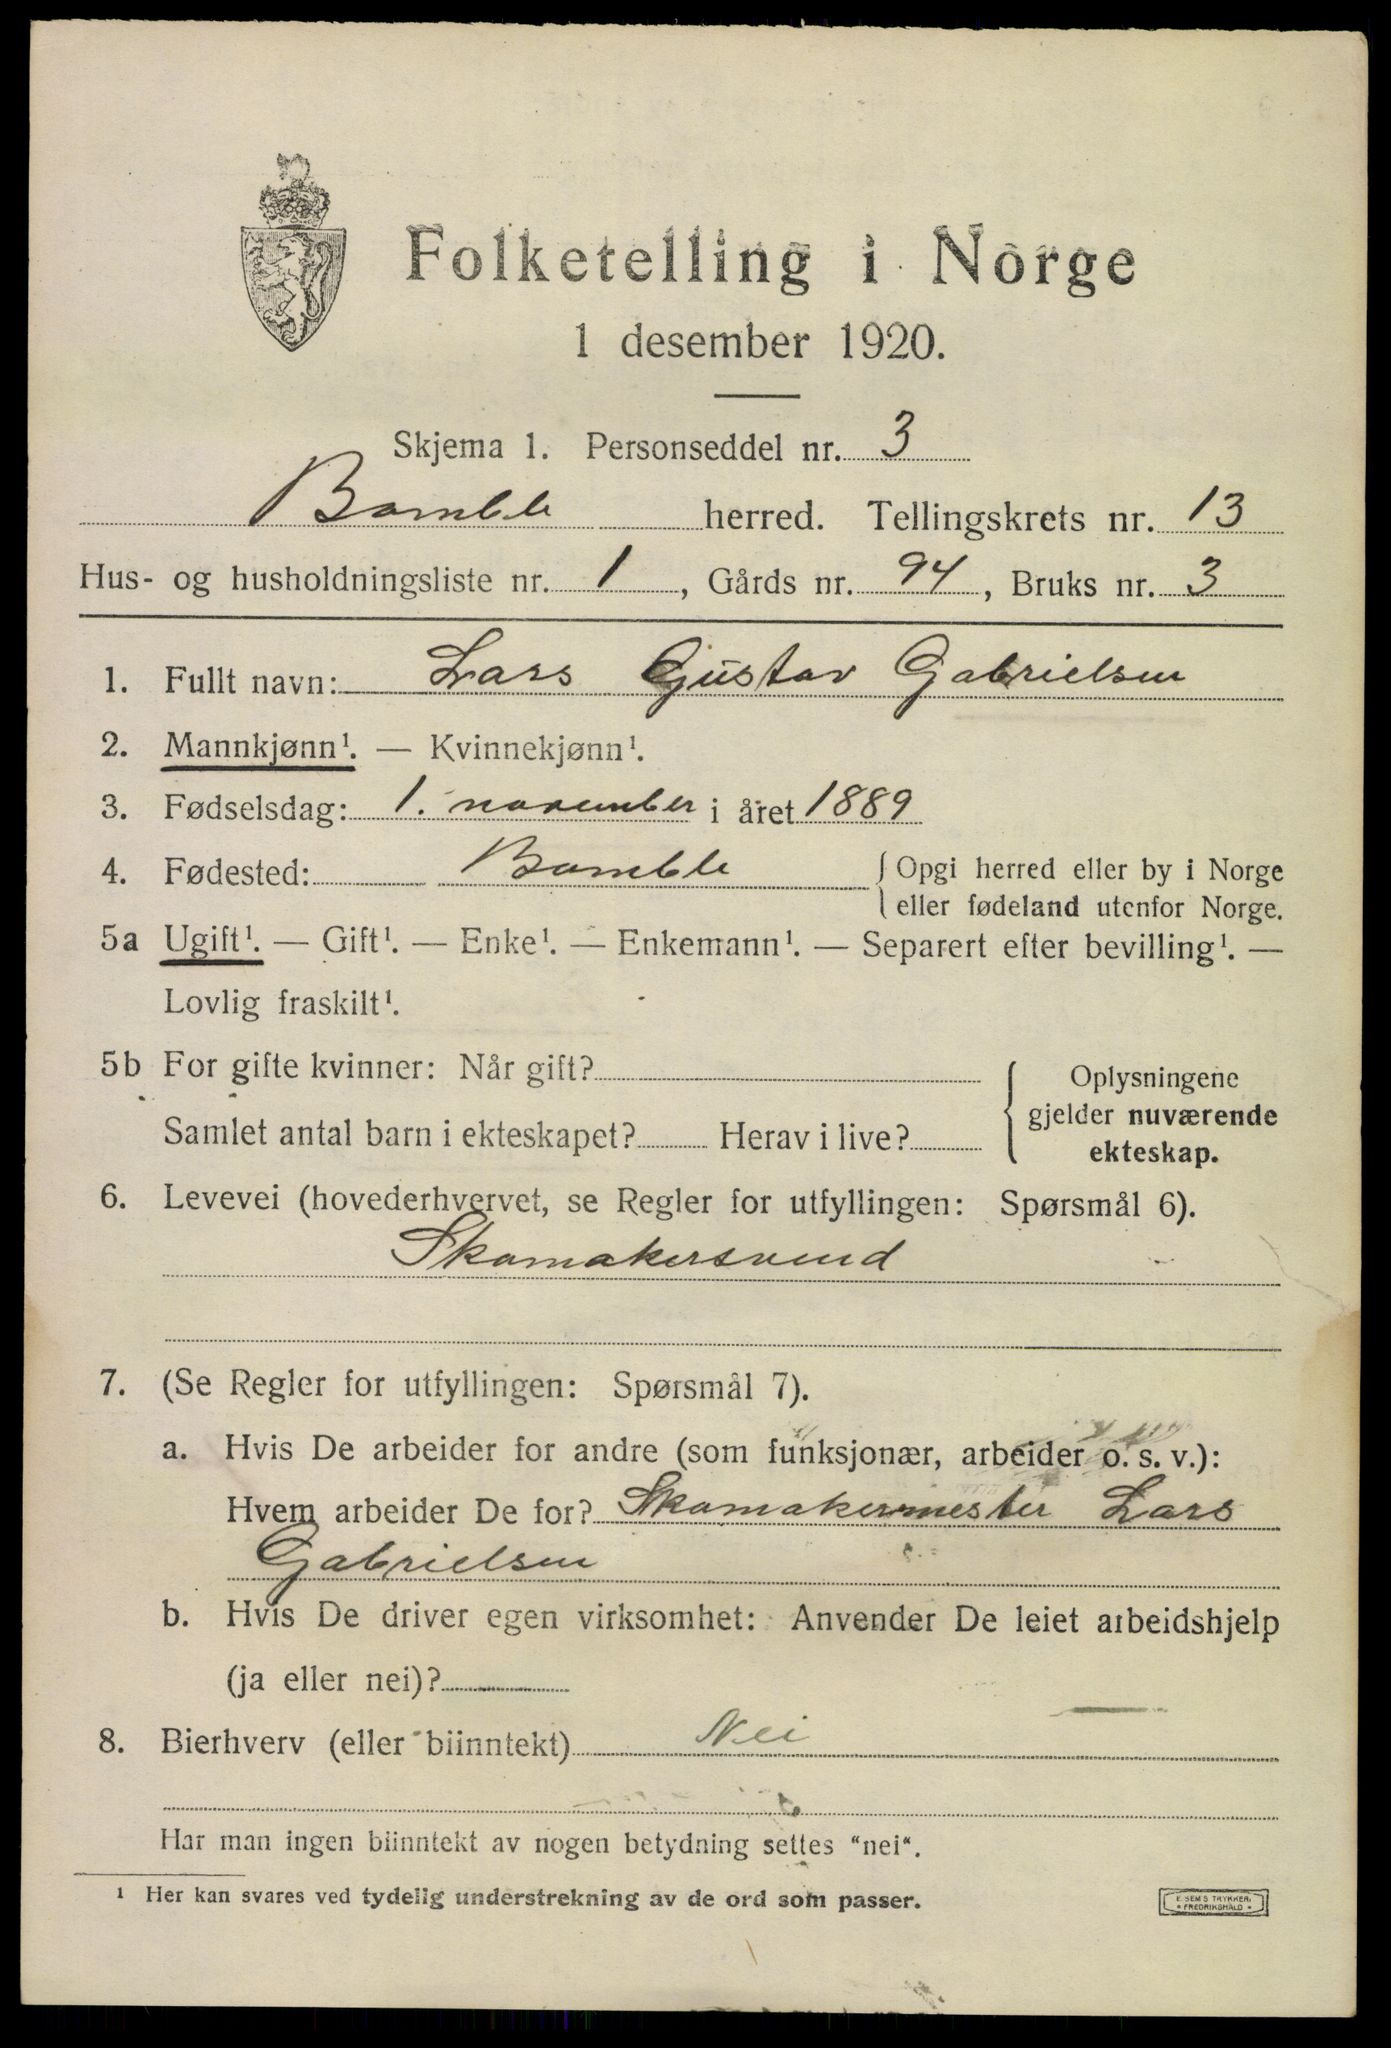 Folketelling i Norge
1 desember 1920.
Skjema 1. Personseddel nr. 3
Bamble herred. Tellingskrets nr. 13
Hus- og husholdningsliste nr. 1, Gårds nr. 94, Bruks nr. 3
1. Fullt navn: Lars Gustav Gabrielsen
2. Mannkjønn¹. — Kvinnekjønn¹.
3. Fødselsdag: 1. november i året 1889
4. Fødested: Bamble { Opgi herred eller by i Norge
eller fødeland utenfor Norge.
5a Ugift¹. — Gift¹. — Enke¹. — Enkemann¹. — Separert efter bevilling¹. —
Lovlig fraskilt¹.
5b For gifte kvinner: Når gift?
Samlet antal barn i ekteskapet? Herav i live?
{ Oplysningene
gjelder nuværende
ekteskap.
6. Levevei (hovederhvervet, se Regler for utfyllingen: Spørsmål 6).
Skomakersvend
7. (Se Regler for utfyllingen: Spørsmål 7).
a. Hvis De arbeider for andre (som funksjonær, arbeider o. s. v.):
Hvem arbeider De for? Skomakermester Lars
Gabrielsen
b. Hvis De driver egen virksomhet: Anvender De leiet arbeidshjelp
(ja eller nei)?
8. Bierhverv (eller biinntekt) Nei
Har man ingen biinntekt av nogen betydning settes "nei".
¹ Her kan svares ved tydelig understrekning av de ord som passer.
E. SEMS TRYKKERI
FREDRIKSHALD